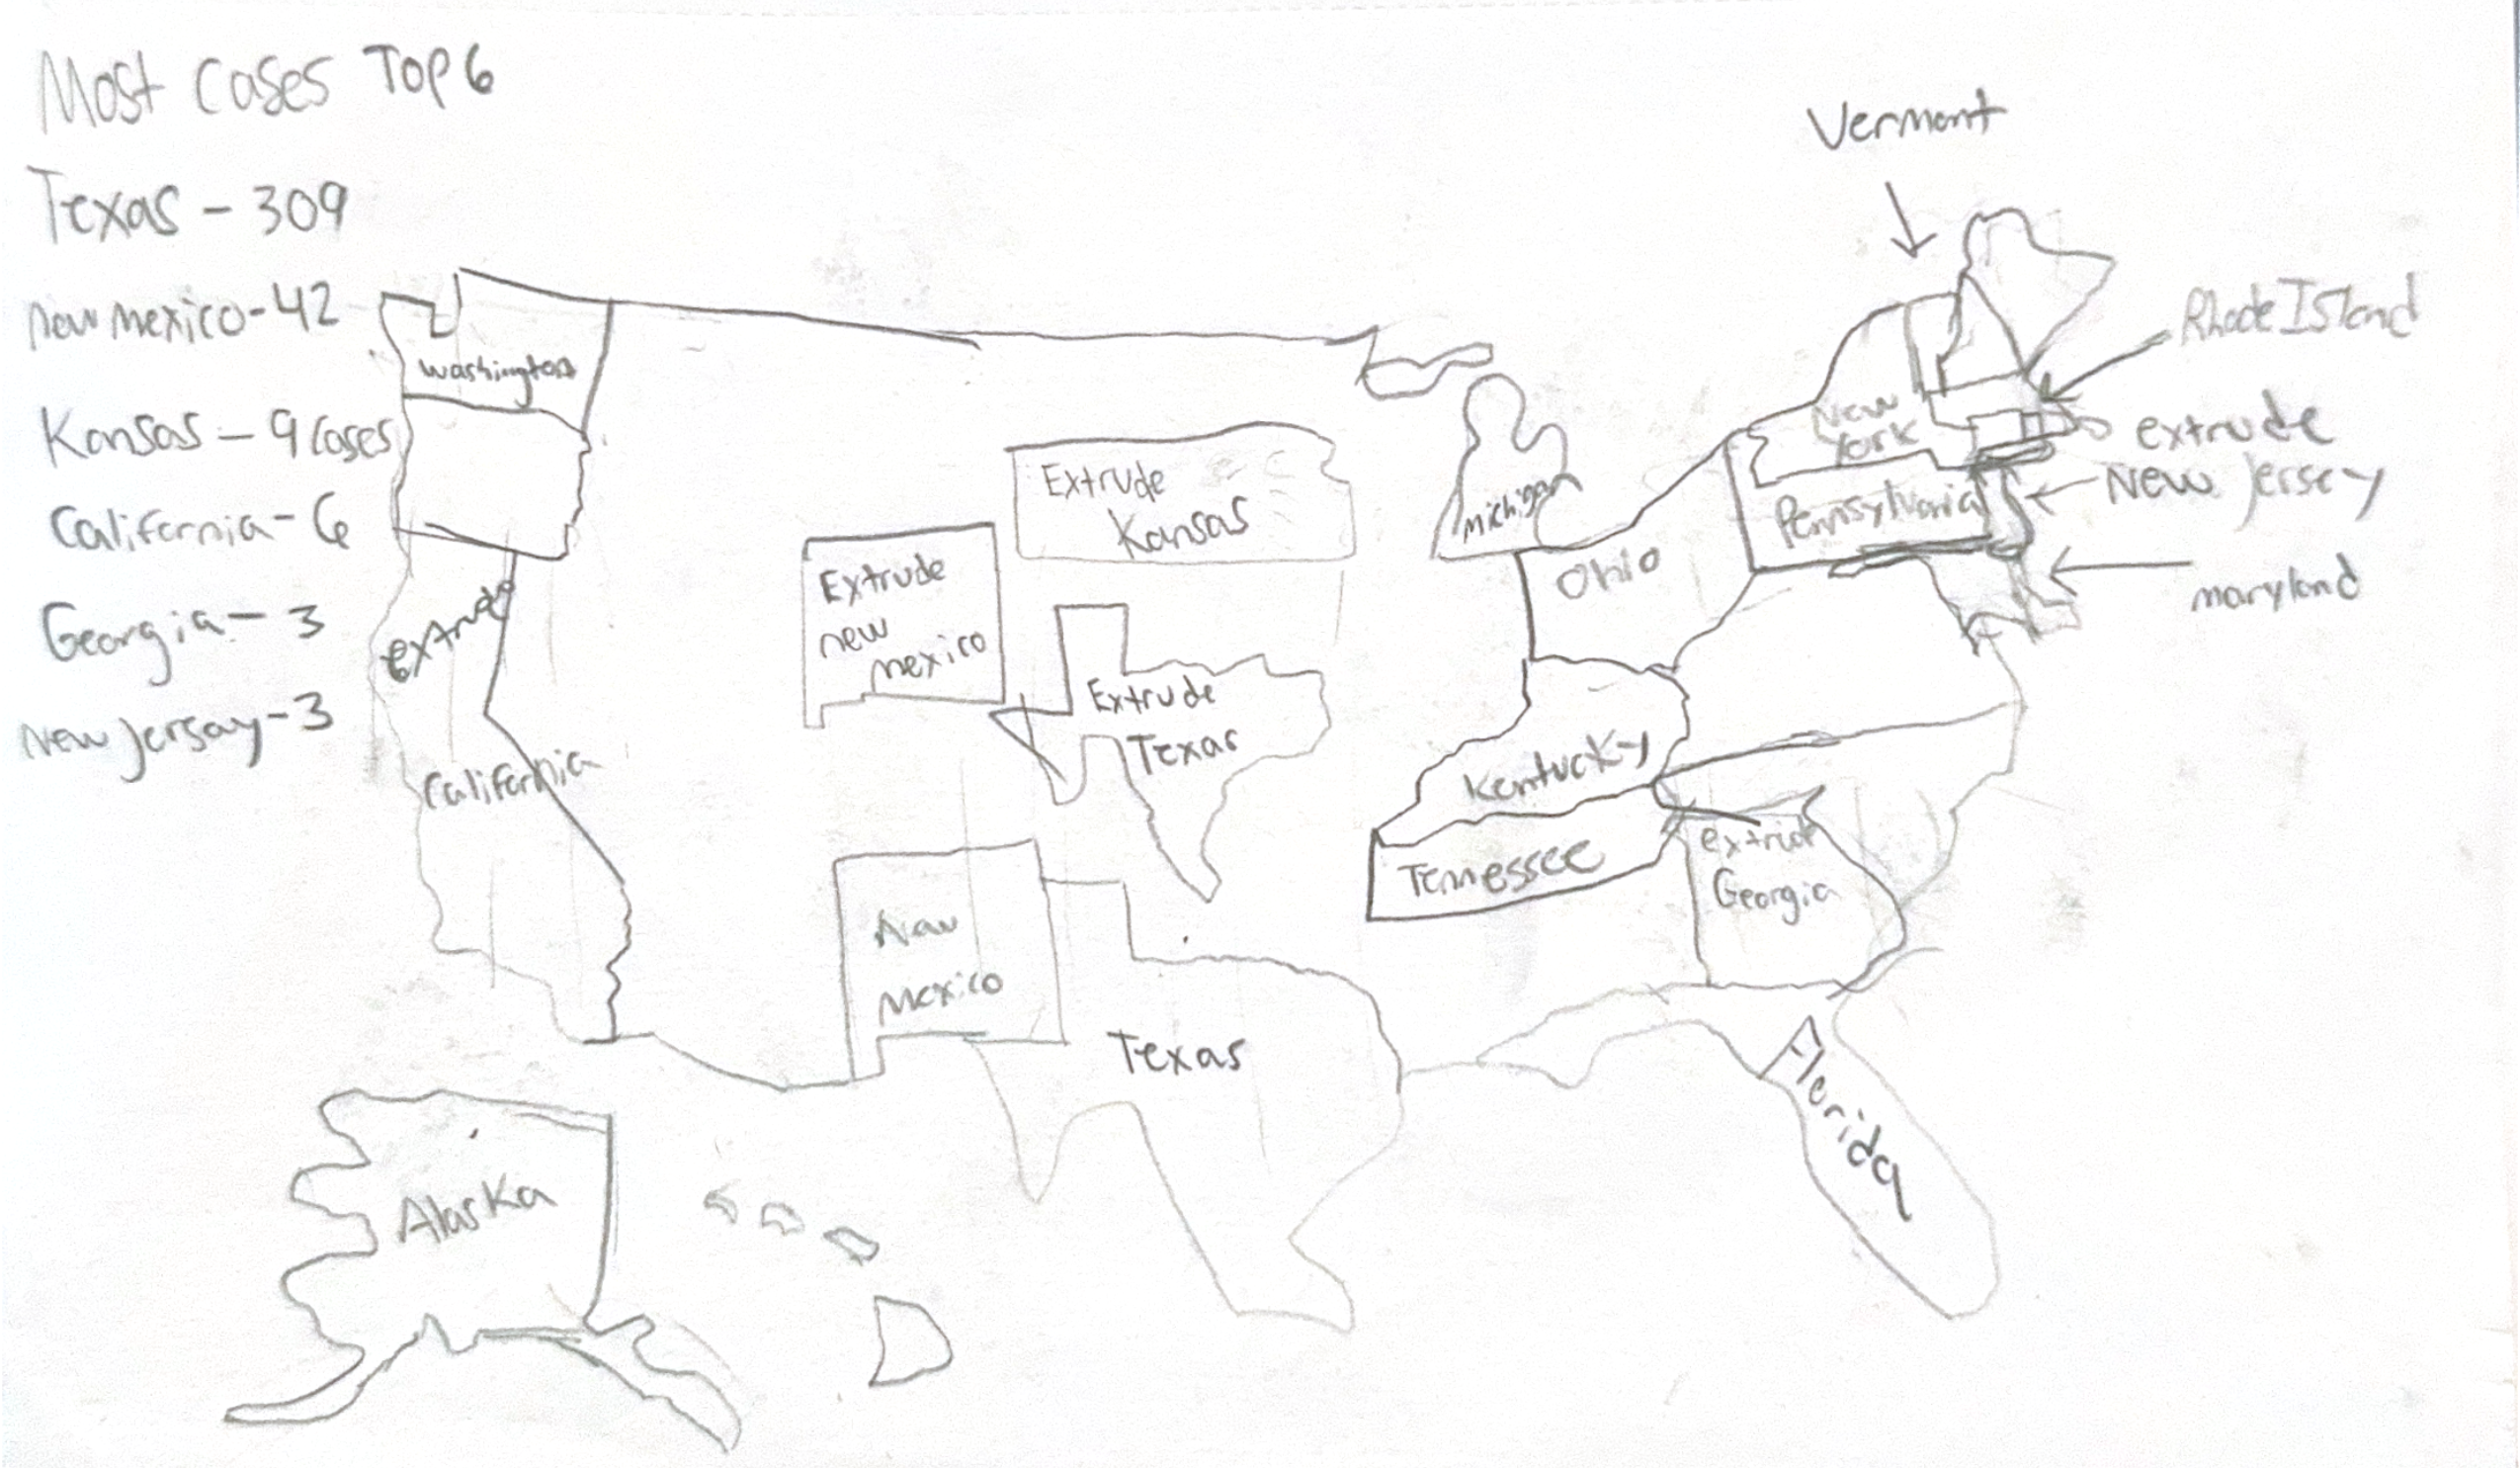 Most Cases Top 6
Texas - 309
new mexico - 42
Kansas - 9 cases
California - 6
Georgia - 3
New Jersay - 3
Vermont
Rhode Island
extrude
New Jersey
maryland
washington
extrude
California
Extrude
Kansas
Extrude
new
mexico
Extrude
Texas
New
Mexico
Texas
michigan
Ohio
New
York
Pennsylvania
Kentucky
Tennessee
Georgia
Florida
Alaska